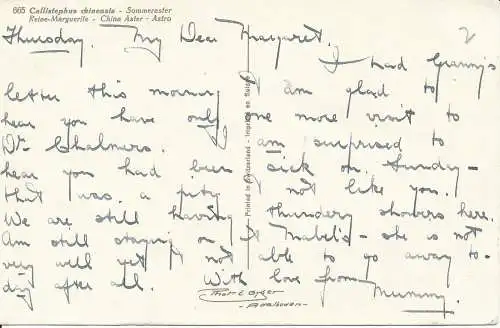 665 Callistephus chinensis - Sommeraster
Reine-Marguerite - China Aster - Astro
Thursday. My Dear Margaret. 2
I had Granny's
letter this morning I am glad to
hear you have only one more visit to
Dr Chalmers. I am surprised to
hear you had been sick on Sunday -
that was a pity. not like you.
We are still having thundery showers here.
Am still staying on at Mabel's - she is not
very well yet & not able to go away to-
day after all. With love from
Mummy.
Printed in Switzerland - Imprimé en Suisse